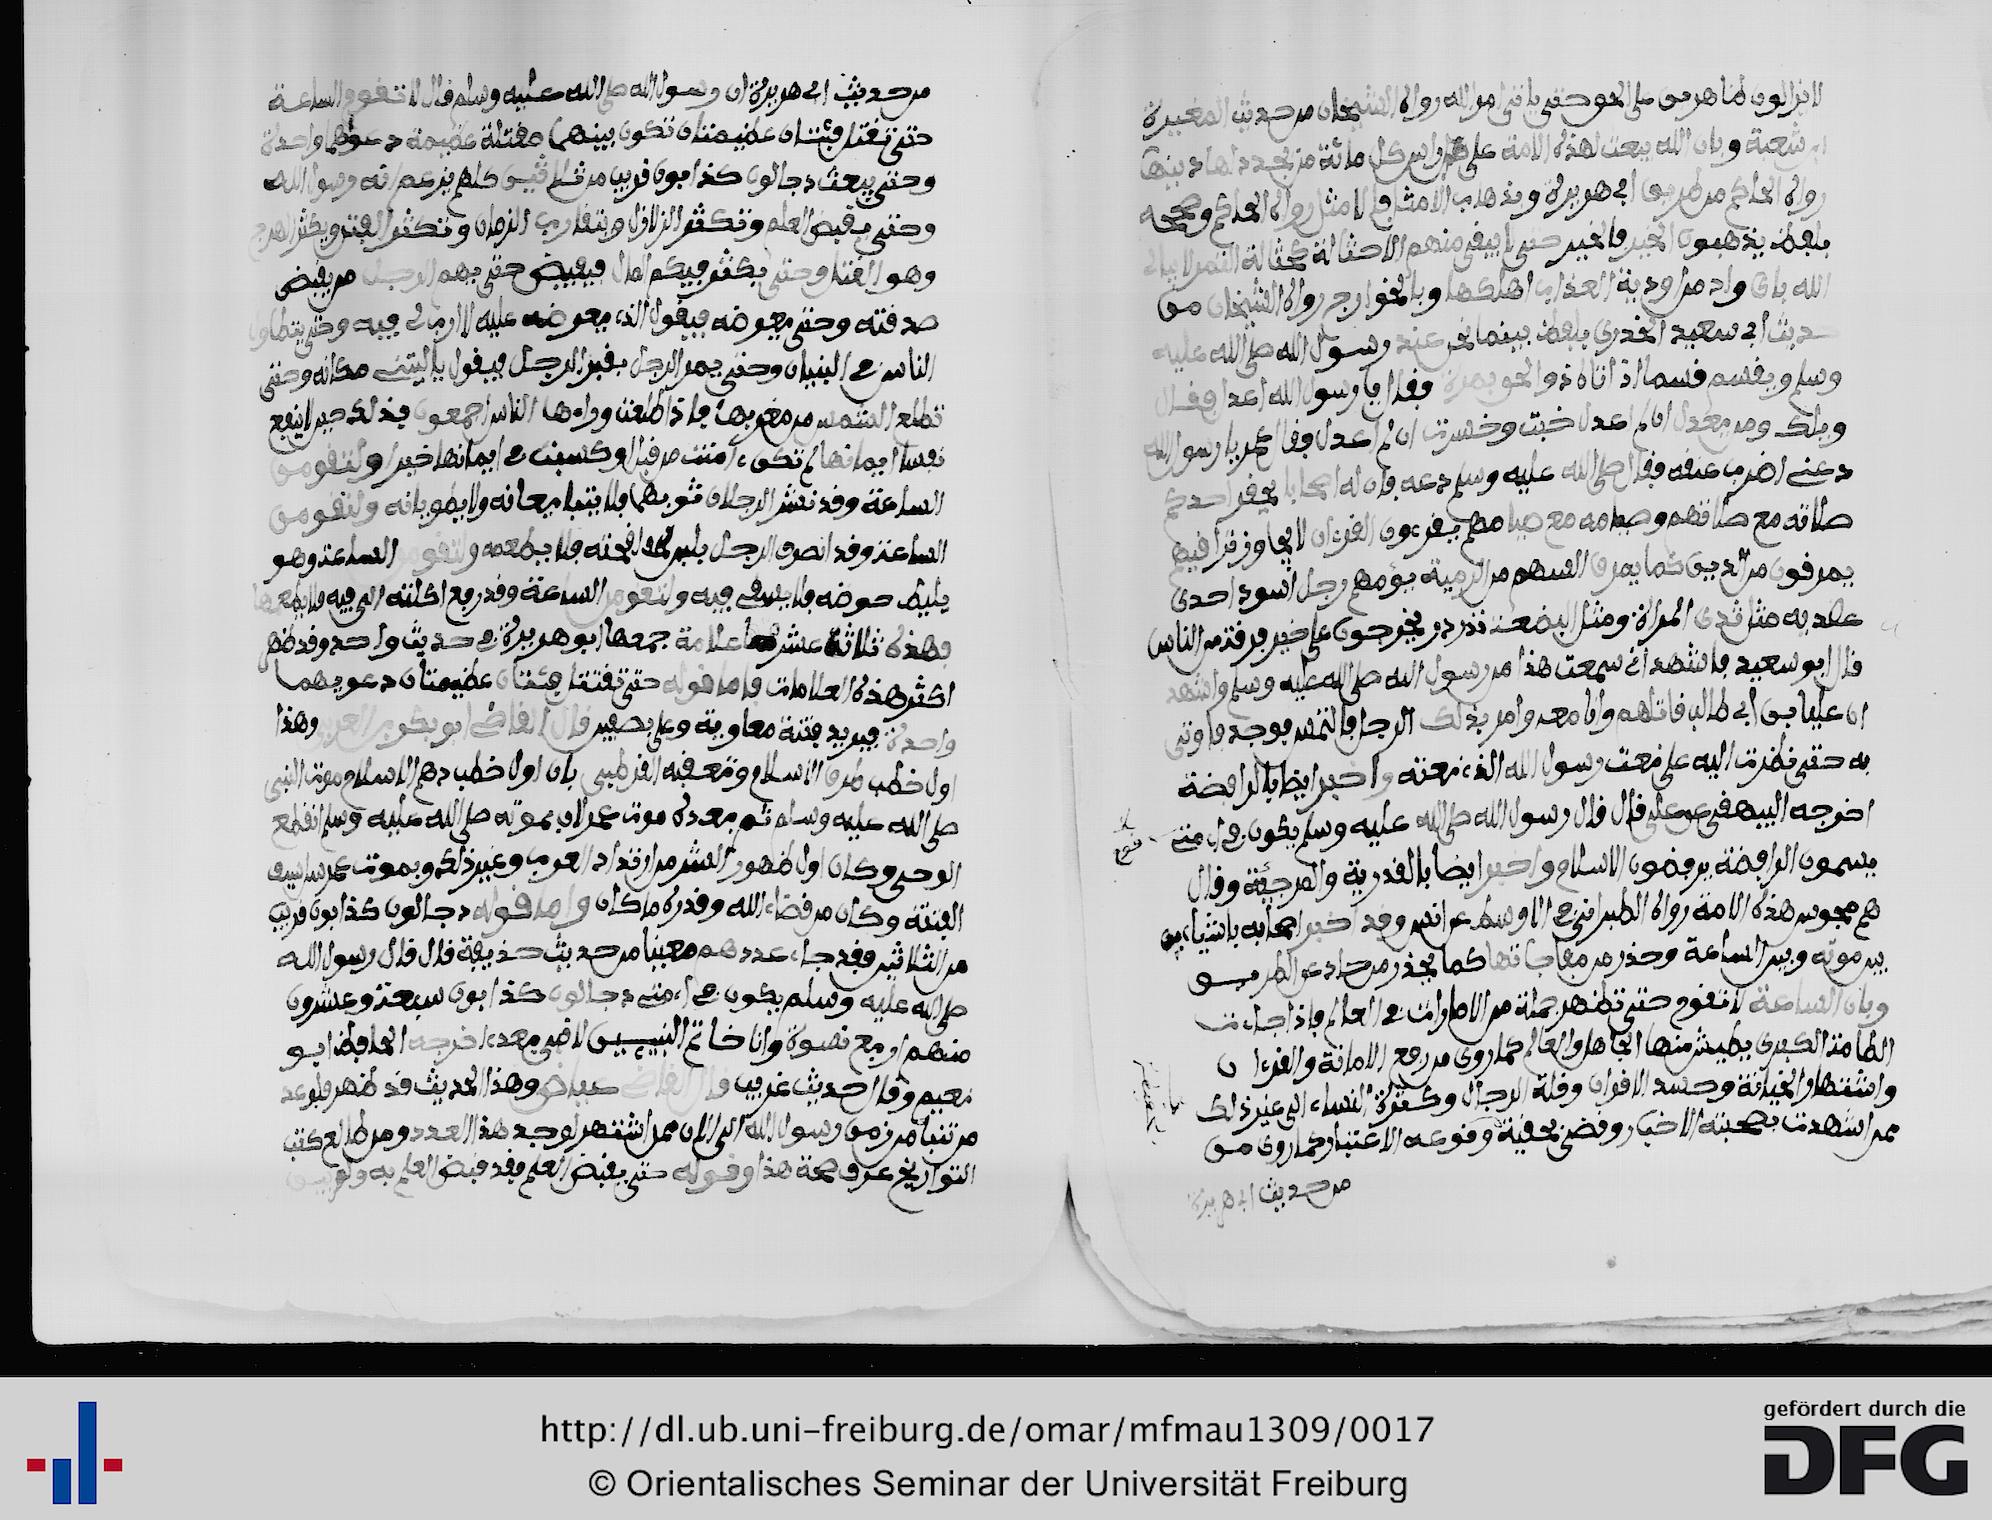 لا يزالون ظاهرين على الحق حتى ياتي امر الله رواه الشيخان من حديث المغيرة
ابن شعبة وبان الله يبعث لهذه الامة على راس كل مائة من يجدد لها دينها
رواه الحاكم من طريق ابي هريرة وبذهاب الامثل فالامثل رواه الحاكم وصححه
بلفظ يذهبون الخير فالخير حتى لا يبقى منهم الا حثالة كحثالة التمر لا يبالي
الله باي واد من اودية العذاب اهلكها وبالخوارج رواه الشيخان من
حديث ابي سعيد الخدري بلفظ بينما نحن عند رسول الله صلى الله عليه
وسلم ويقسم قسما اذ اتاه ذو الخويصرة فقال يا رسول الله اعدل فقال
ويلك ومن يعدل ان لم اعدل خبت وخسرت ان لم اعدل وقال عمر يا رسول الله
دعني اضرب عنقه فقال صلى الله عليه وسلم دعه فان له اصحابا يحقر احدكم
صلاته مع صلاتهم وصيامه مع صيامهم يقرءون القرءان لا يجاوز تراقيهم
يمرقون من الدين كما يمرق السهم من الرمية يؤمهم رجل اسود احدى
عضديه مثل ثدي المراة ومثل البضعة تدردر يخرجون على خير فرقة من الناس
قال ابو سعيد فاشهد اني سمعت هذا من رسول الله صلى الله عليه وسلم واشهد
ان عليا بن ابي طالب قاتلهم وانا معه وامر بذلك الرجل فالتمس فوجد فاوتي
به حتى نظرت اليه على نعت رسول الله الذي نعته واخبر ايضا بالرافضة
اخرجه البيهقي عن علي قال قال رسول الله صلى الله عليه وسلم يكون في امتي
قوم
يسمون الرافضة يرفضون الاسلام واخبر ايضا بالقدرية والمرجئة وقال
هم مجوس هذه الامة رواه الطبراني في الاوسط عن انس وقد اخبر اصحابه باشياء بين
بين موته وبين الساعة وحذر من مفاجاتها كما يحذر من حاد عن الطريق
وبان الساعة لا تقوم حتى تظهر جملة من الامارات في العالم فاذا جاءت
الطامة الكبرى يطيش منها الجاهل والعالم كما روي من رفع الامانة والقرءان
واشتهار الخيانة وحسد الاقران وقلة الرجال وكثرة النساء الى غير ذلك
مما شهدت بصحته الاخبار وقضى بحقية وقوعه الاعتبار كما روي من
من حديث ابي هريرة
من حديث ابي هريرة ان رسول الله صلى الله عليه وسلم قال لا تقوم الساعة
حتى تقتتل فئتان عظيمتان تكون بينهما مقتلة عظيمة دعواهما واحدة
وحتى يبعث دجالون كذابون قريب من ثلاثين كلهم يزعم انه رسول الله
وحتى يقبض العلم وتكثر الزلازل ويتقارب الزمان وتكثر الفتن ويكثر الهرج
وهو القتل وحتى يكثر فيكم المال فيفيض حتى يهم الرجل من يقبض
صدقته وحتى يعرضه فيقول الذي يعرضه عليه لا ارب لي فيه وحتى يتطاول
الناس في البنيان وحتى يمر الرجل بقبر الرجل فيقول يا ليتني مكانه وحتى
تطلع الشمس من مغربها فاذا طلعت وراءها الناس اجمعون فذلك حين لا ينفع
نفسا ايمانها لم تكن ءامنت من قبل او كسبت في ايمانها خيرا ولتقومن
الساعة وقد نشر الرجلان ثوبهما فلا يتبايعانه ولا يطويانه ولتقومن
الساعة وقد انصرف الرجل بلبن لقحته فلا يطعمه ولتقومن الساعة وهو
يليط حوضه فلا يسقى فيه ولتقومن الساعة وقد رفع اكلته الى فيه فلا يطعمها
فهذه ثلاثة عشر علامة جمعها ابو هريرة في حديث واحد وقد ظهر
اكثر هذه العلامات فاما قوله حتى تقتتل فئتان عظيمتان دعويهما
واحدة فيريد فتنة معاوية وعلي بصفين قال القاضي ابو بكر بن العربي وهذا
اول خطب طرق الاسلام وتعقبه القرطبي بان اول خطب دهم الاسلام موت النبي
صلى الله عليه وسلم ثم بعده موت عمر لان بموته صلى الله عليه وسلم انقطع
الوحي وكان اول ظهور الشر من ارتداد العرب وغير ذلك وبموت عمر سل سيف
الفتنة وكان من قضاء الله وقدره ما كان واما قوله دجالون كذابون قريب
من الثلاثين فقد جاء عددهم معينا من حديث حذيفة قال قال رسول الله
صلى الله عليه وسلم يكون في امتي دجالون كذابون سبعة وعشرون
منهم اربع نسوة وانا خاتم النبيين لا نبي بعدي اخرجه الحافظ ابو
نعيم وقال حديث غريب قال القاضي عياض وهذا الحديث قد ظهر فلو عد
من تنبا من زمن رسول الله الى الان ممن اشتهر لوجد هذا العدد ومن طالع كتب
التواريخ عرف صحة هذا وقوله حتى يقبض العلم فقد قبض العلم به ولم يبق
http://dl.ub.uni-freiburg.de/omar/mfmau1309/0017
© Orientalisches Seminar der Universität Freiburg
gefördert durch die
DFG